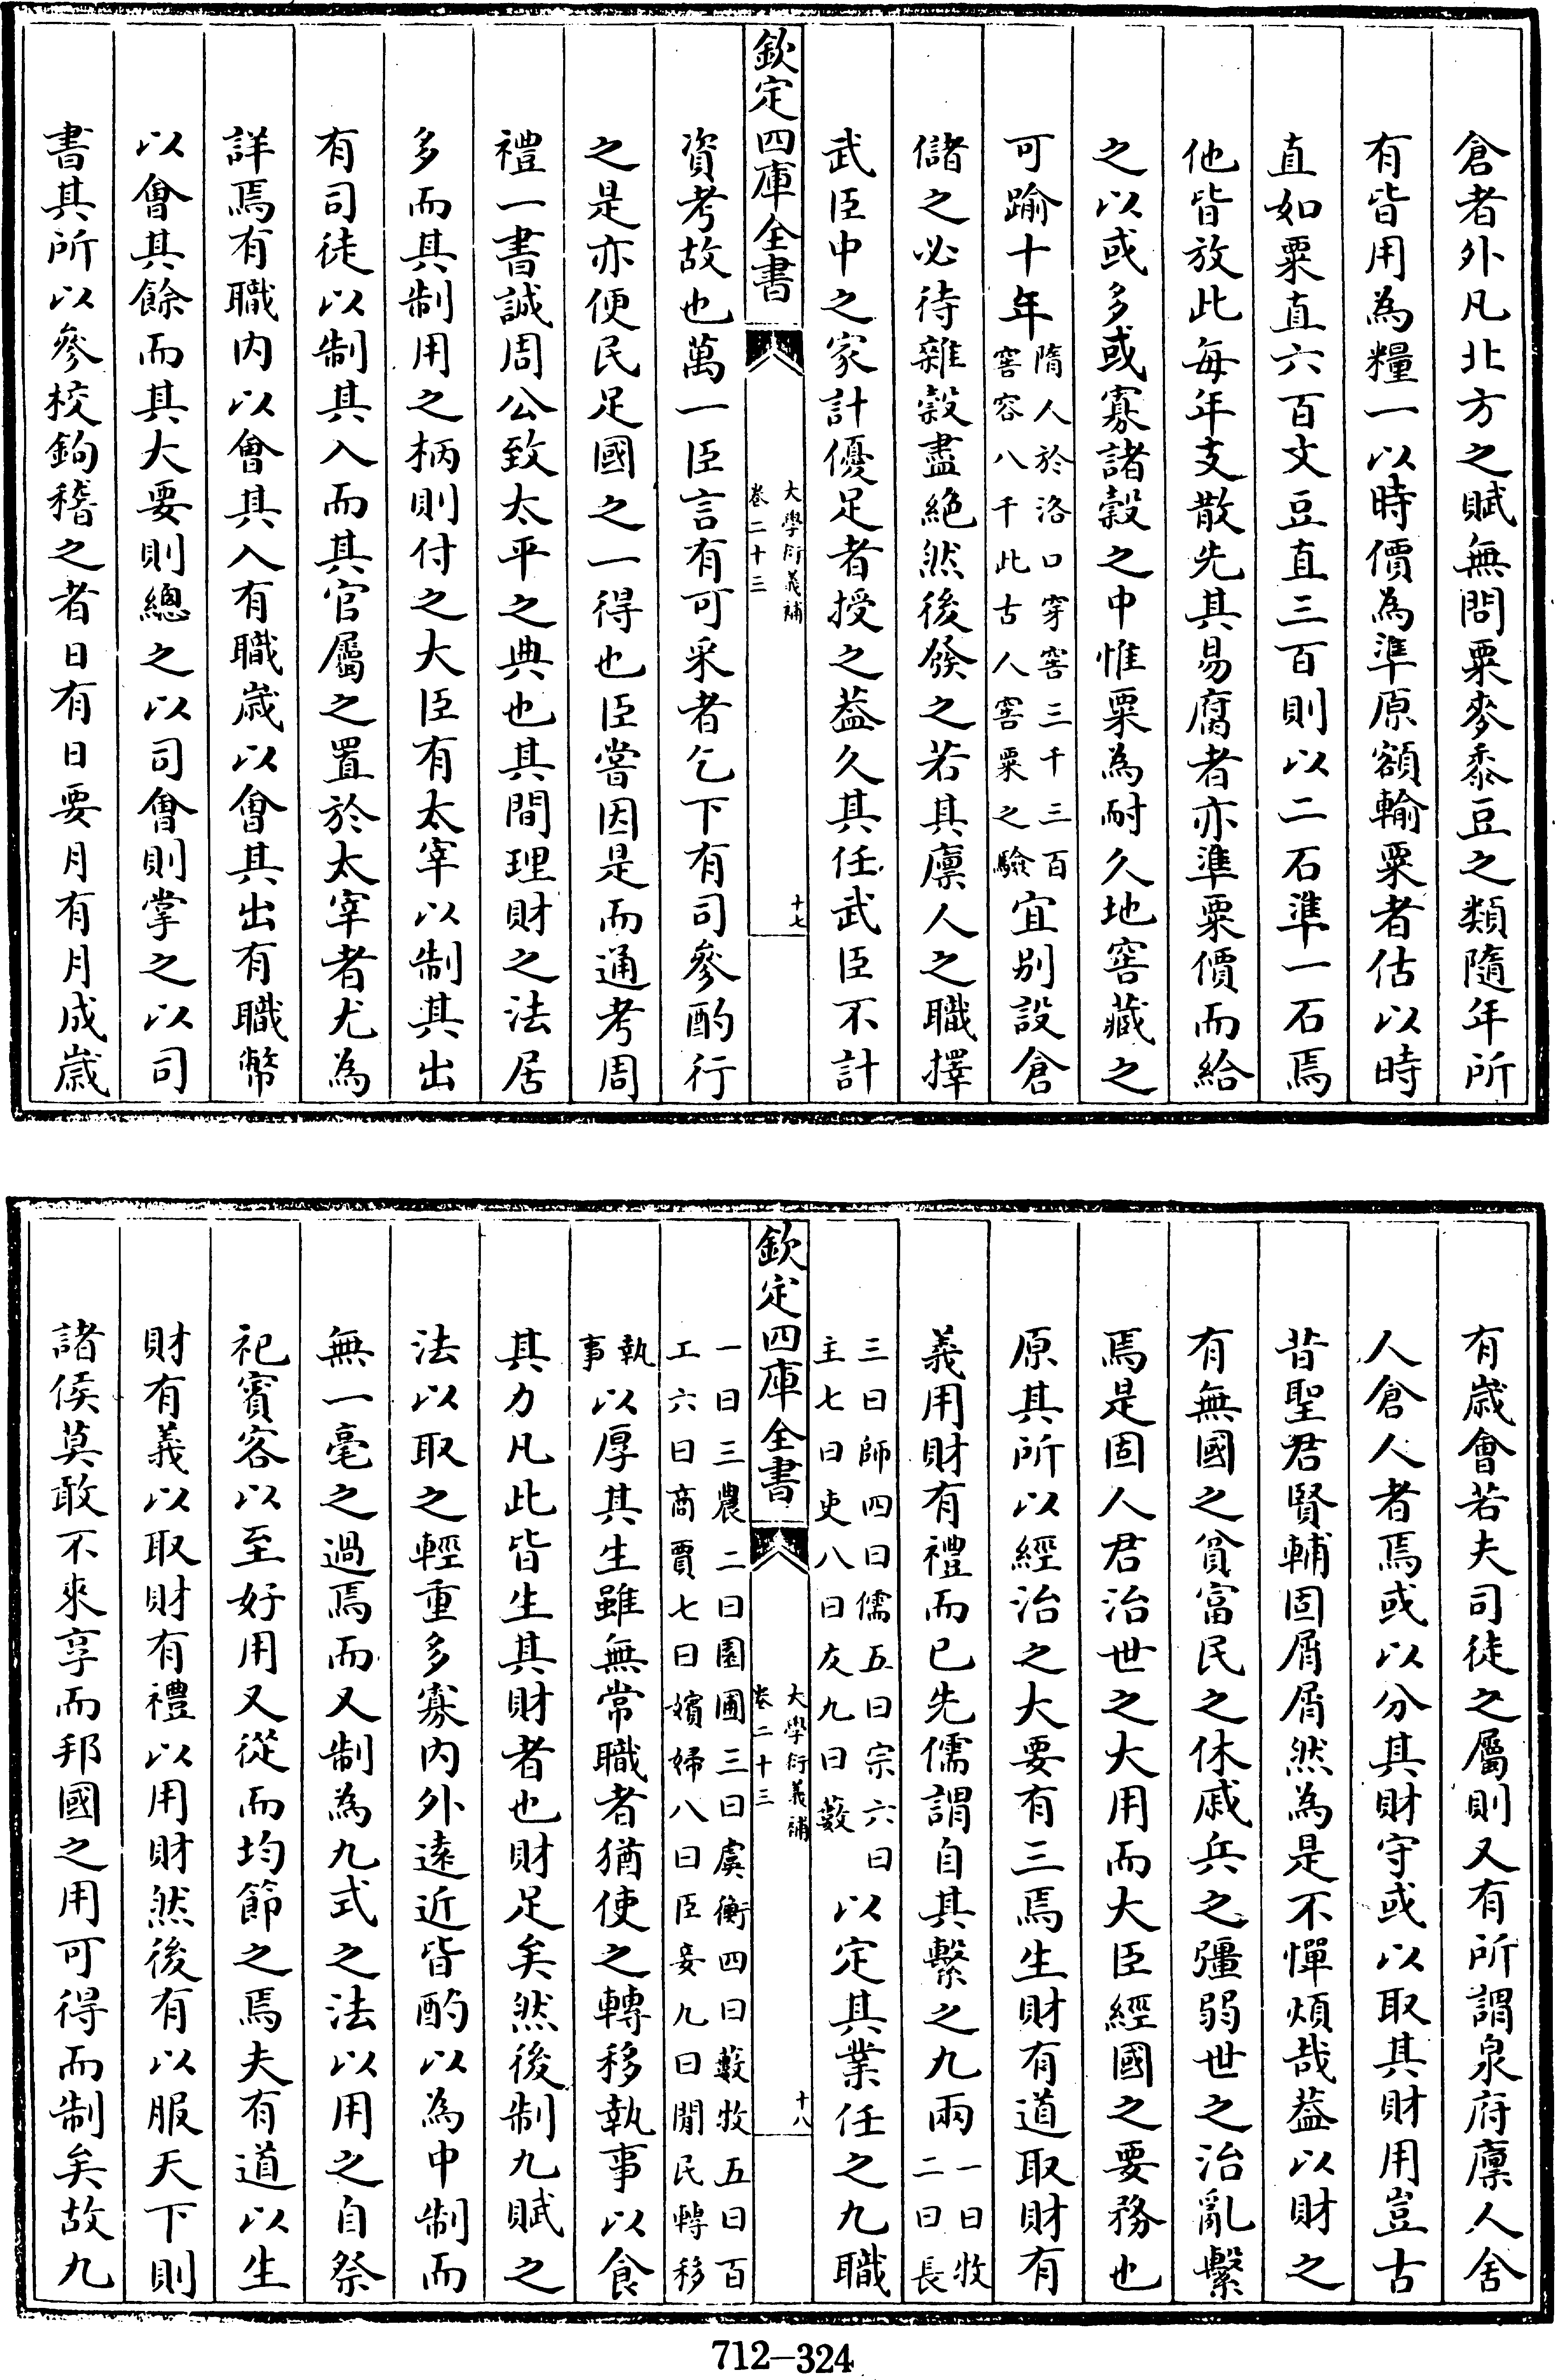 倉者外凡北方之賦無問粟麥黍豆之類隨年所
有皆用為糧一以時價為準原額輸粟者估以時
直如粟直六百文豆直三百則以二石準一石焉
他皆放此每年支散先其易腐者亦準粟價而給
之以或多或寡諸穀之中惟粟為耐久地窖藏之
可踰十年隋人於洛口穿窖三千三百窖容八千此古人窖粟之驗宜别設倉
儲之必待雜穀盡絶然後發之若其廪人之職擇
武臣中之家計優足者授之葢久其任武臣不計
欽定四庫全書
大學衍義補
卷二十三
十七
資考故也萬一臣言有可采者乞下有司參酌行
之是亦便民足國之一得也臣嘗因是而通考周
禮一書誠周公致太平之典也其間理財之法居
多而其制用之柄則付之大臣有太宰以制其出
有司徒以制其入而其官屬之置於太宰者尤為
詳焉有職内以會其入有職歲以會其出有職幣
以會其餘而其大要則總之以司會則掌之以司
書其所以參校鉤稽之者日有日要月有月成歲
有歲會若夫司徒之屬則又有所謂泉府廪人舍
人倉人者焉或以分其財守或以取其財用豈古
昔聖君賢輔固屑屑然為是不憚煩哉葢以財之
有無國之貧富民之休戚兵之彊弱世之治亂繫
焉是固人君治世之大用而大臣經國之要務也
原其所以經治之大要有三焉生財有道取財有
義用財有禮而已先儒謂自其繫之九兩一曰牧二曰長
三曰師四曰儒五曰宗六曰主七曰吏八曰友九曰藪以定其業任之九職
欽定四庫全書
大學衍義補
卷二十三
十八
一曰三農二曰園圃三曰虞衡四曰藪牧五曰百工六曰商賈七曰嬪婦八曰臣妾九曰閒民轉移
執事以厚其生雖無常職者猶使之轉移執事以食
其力凡此皆生其財者也財足矣然後制九賦之
法以取之輕重多寡内外遠近皆酌以為中制而
無一毫之過焉而又制為九式之法以用之自祭
祀賓客以至好用又從而均節之焉夫有道以生
財有義以取財有禮以用財然後有以服天下則
諸侯莫敢不來享而邦國之用可得而制矣故九
712-324